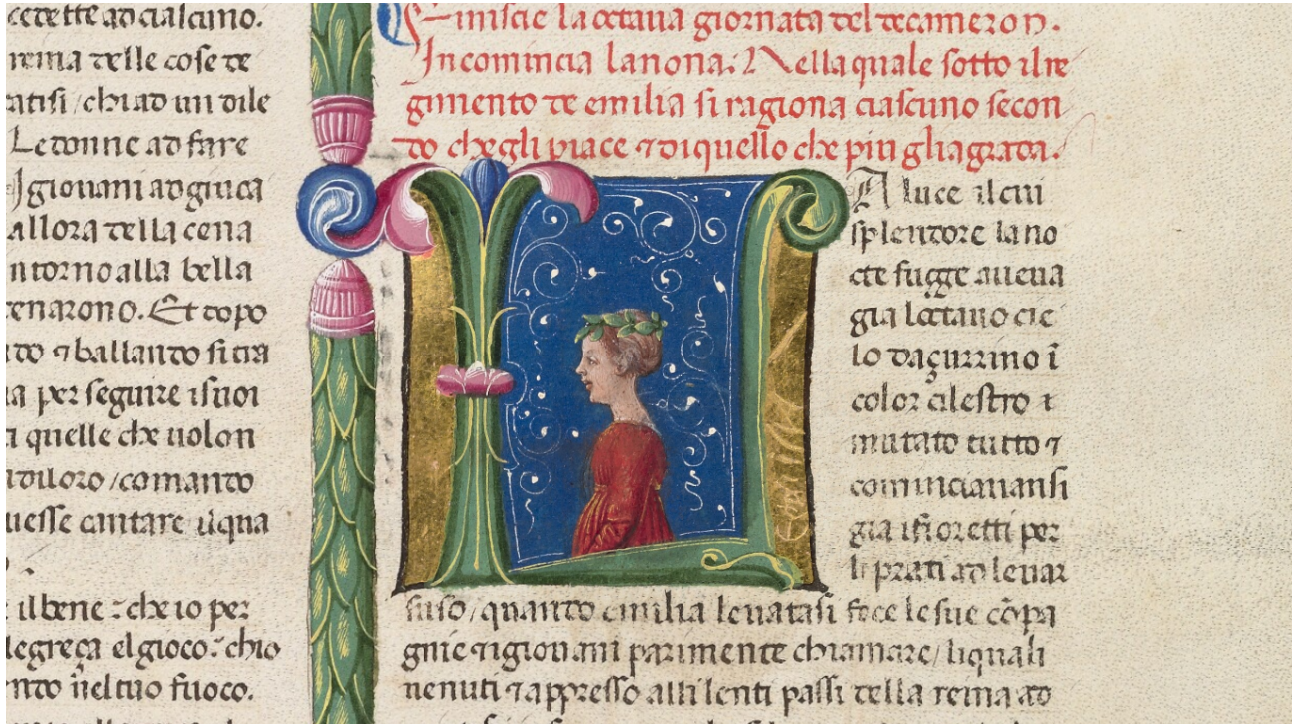 cedette ad ciascuno.
reina delle cose de
ratisi / chi ad un dile
Le donne ad fare
I giovani ad giuca
allora della cena
ntorno alla bella
cenarono. Et dopo
do ⁊ ballando si cia
na per seguire isuoi
ti quelle che uolon
di loro / comando
uesse cantare ilqua
e ilbene : che io per
legreça el gioco : chio
nto nel tuo fuoco.
Finiscie la octaua giornata del decameron.
Incomincia lanona. Nella quale sotto ilre
gimento de emilia si ragiona ciascuno secon
do che gli piace ⁊ di quello che piu gli agrada.
LA luce il cui
splendore la no
cte fugge aueua
gia loctauo cie
lo daçurrino ī
color cilestro ⁊
mutato tutto ⁊
cominciauansi
gia i fioretti per
li prati ad leuar
suso / quando emilia leuatasi fece le sue cōpa
gnie ⁊ igiouani parimente chiamare / liquali
uenuti ⁊ appresso alli lenti passi della reina ad
Emilia